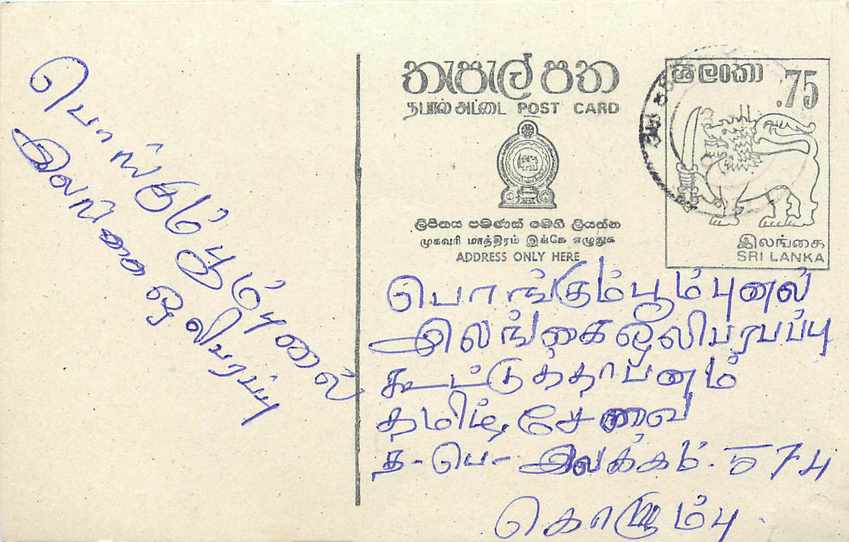 பொங்கும்பூம்புனல்
இலங்கை ஒலிபரப்பு
තැපැල් පත
தபால் அட்டை POST CARD
ලිපිනය පමණක් මෙහි ලියන්න
முகவரி மாத்திரம் இங்கே எழுதுக
ADDRESS ONLY HERE
ශ්‍රී ලංකා .75
இலங்கை
SRI LANKA
பொங்கும்பூம்புனல்
இலங்கை ஒலிபரப்பு
கூட்டுத்தாபனம்
தமிழ் சேவை
த-பெ- இலக்கம். 574
கொழும்பு.